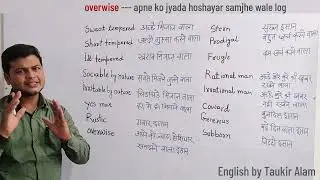 overwise --- apne ko jyada hoshayar samjhe wale log
Sweet tempered अच्छे मिजाज वाला
Short tempered जल्दी गुस्सा करने वाला
Ill tempered खराब मिजाज वाला
Sociable by nature सबसे मिलने जुलने वाला
Irritable by nature चिड़चिड़े मिजाज वाला
yes man हाँ में हाँ मिलाने वाला
Rustic गंवार इंसान
overwise अपने को ज्यादा होशियार समझने वाला इंसान
Stern सख्त इंसान
Prodigal बहुत खर्च करने वाला
Frugle कम खर्च करने वाला
Rational man अच्छे बुरे की खबर रखने वाला
Irrational man अच्छे बुरे की खबर नहीं रखने वाला
Coward बुजदिल इंसान
Generous बड़े दिल वाला इंसान
Subborn जिद्दी इंसान
English by Taukir Alam